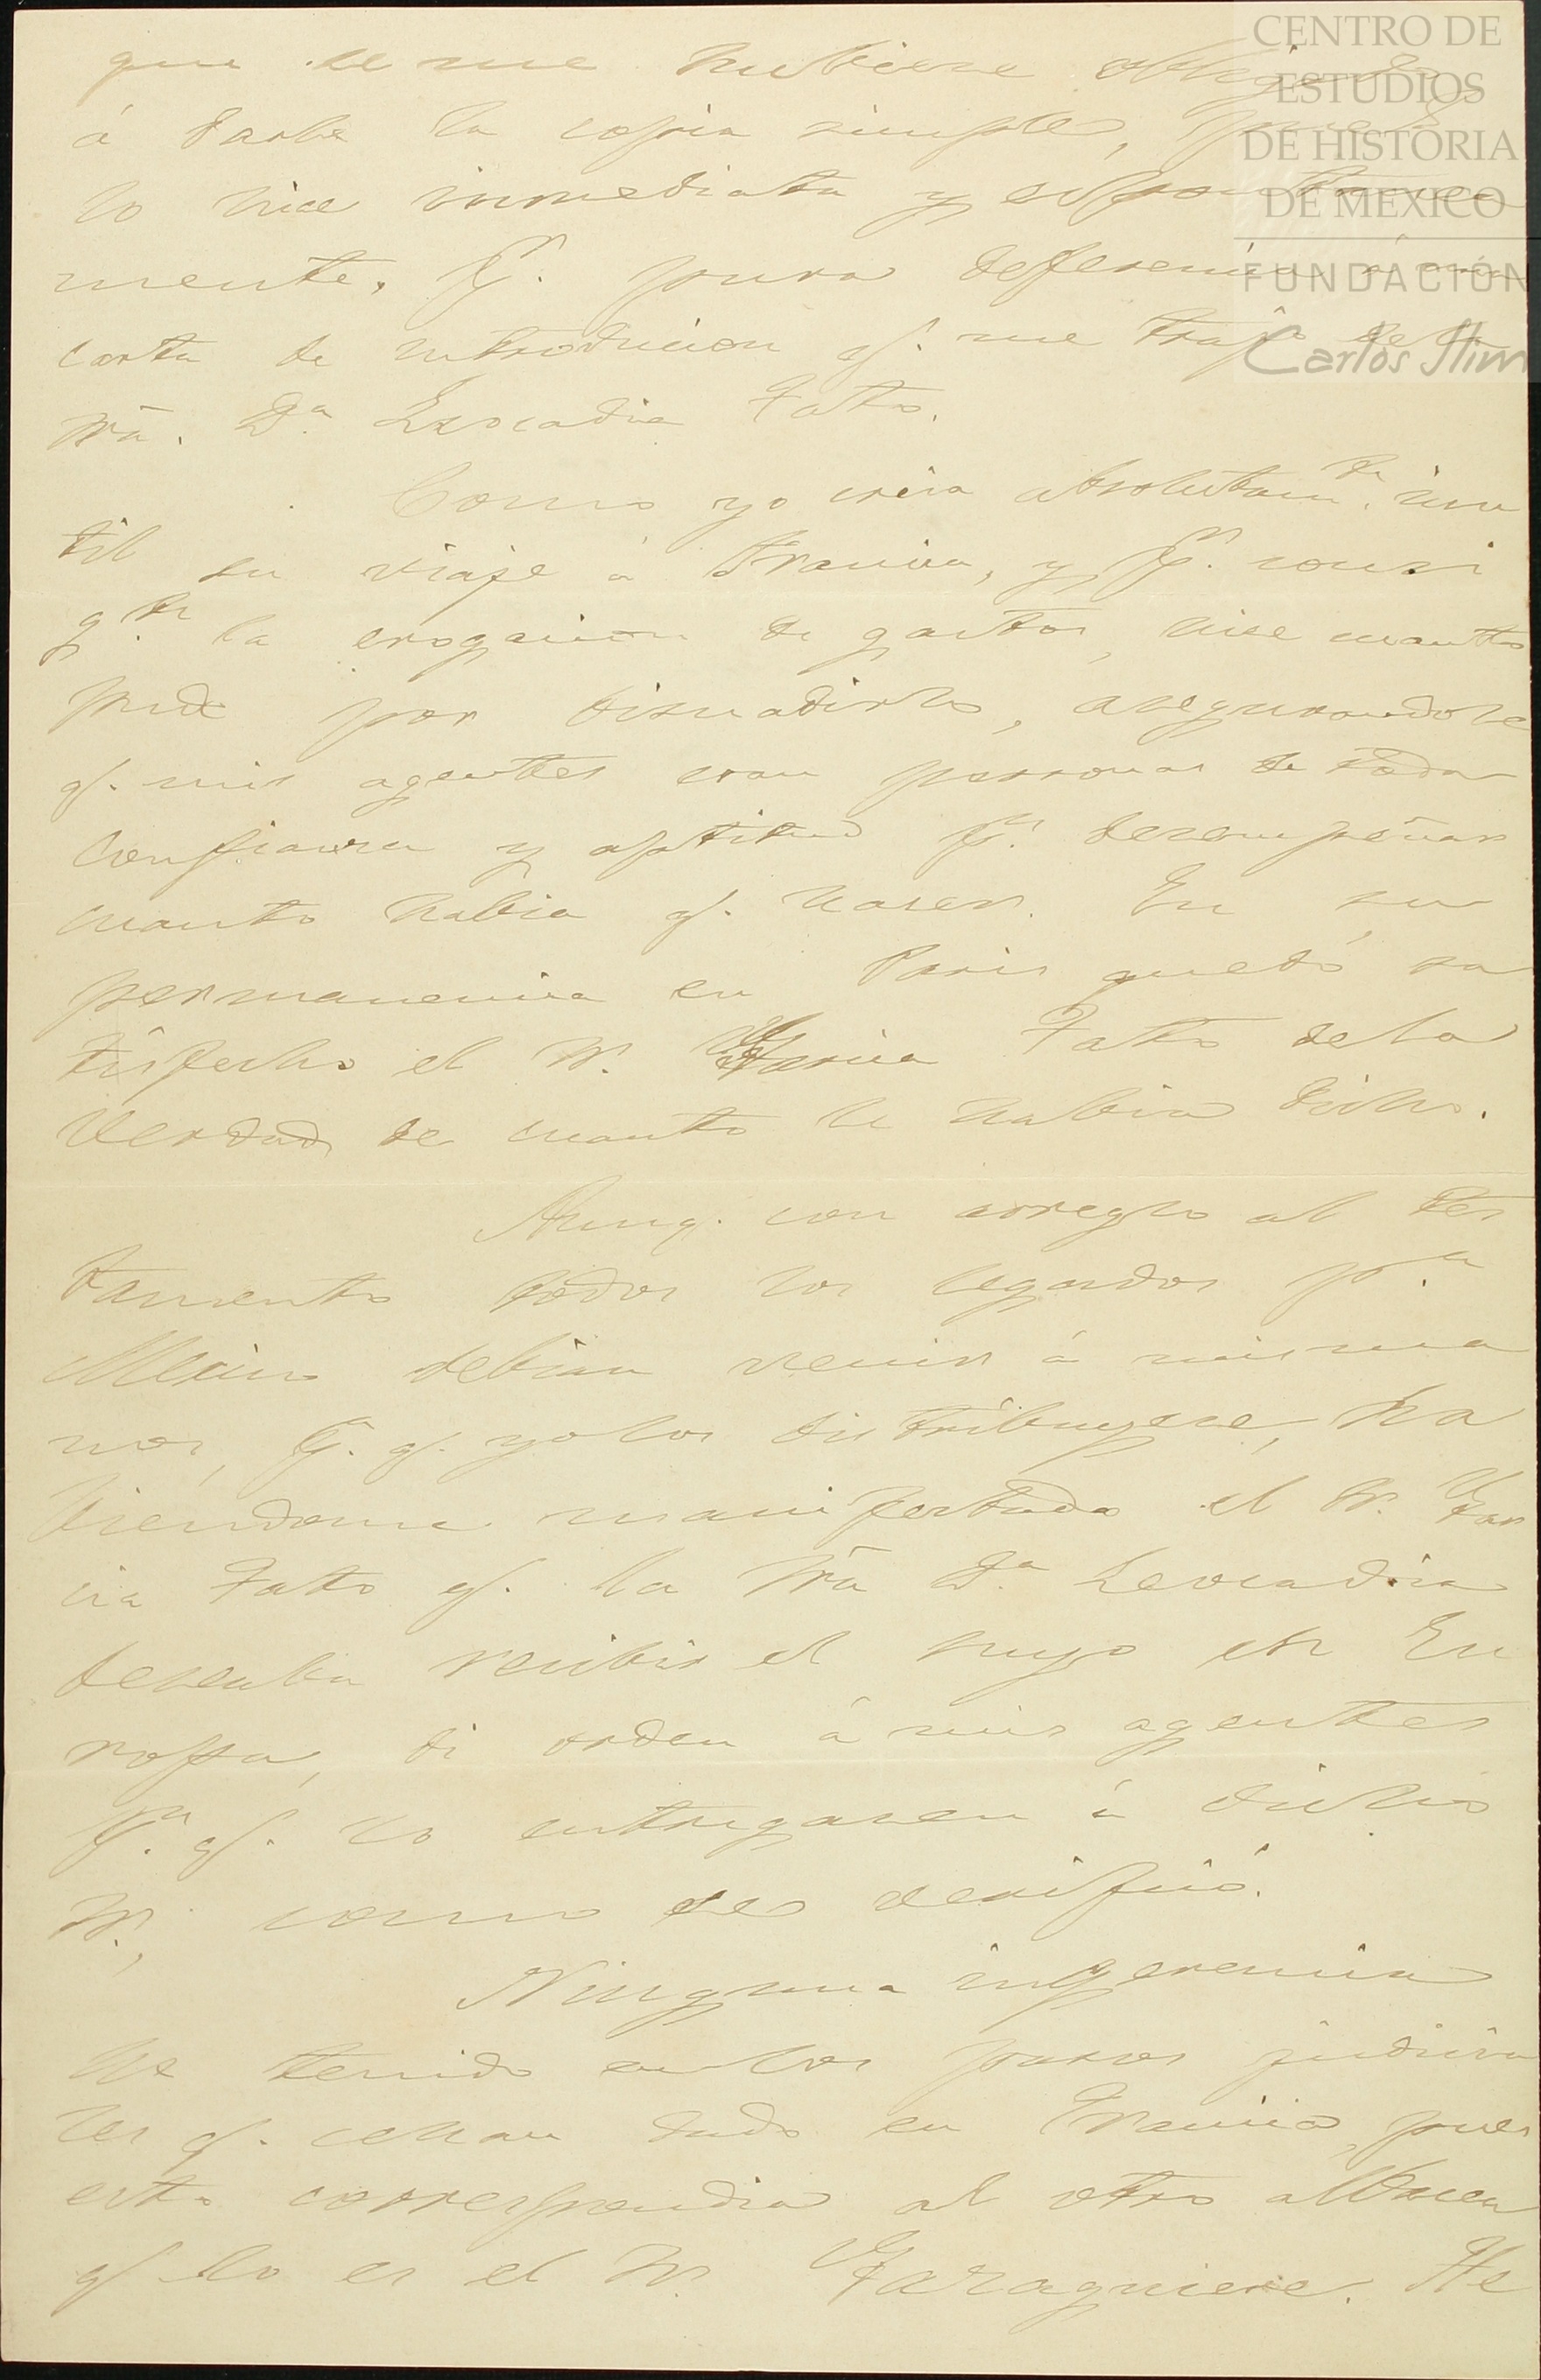 CENTRO DE
ESTUDIOS
DE HISTORIA
DE MEXICO
FUNDACIÓN
Carlos Slim
que se me hubiese obligado
á darle la copia simple, pues
lo hice inmediata y espontanea
mente, pr. pura deferencia á una
carta de introduccion q. me trajo de la
Sra. Da. Leocadia Tato.
Como yo creia absolutamte. inu
til su viaje á Francia, y pr. consi
gte. la erogacion de gastos, hice cuanto
pude por disuadirlo, asegurandole
q. mis agentes eran personas de toda
confianza y aptitud pa. desempeñar
cuanto habia q. hacer. En su
permanencia en Paris quedó sa
tisfecho el Sr. Garcia Tato de la
verdad de cuanto le habia dicho.
Aunq. con arreglo al tes
tamento todos los legados pa.
Mexico debian venir á mis ma
nos, pa. q. yo los distribuyese, ha
biendome manifestado el Sr. Gar
cia Tato q. la Sra. Da. Leocadia
deseaba recibir el suyo en Eu
ropa, di orden á mis agentes
pa. q. lo entregasen á dicho
Sr., como se verificó.
Ninguna ingerencia
he tenido en los pasos judicia
les q. se han dado en Francia, pues
esto correspondia al otro albacea
q. lo es el Sr. He